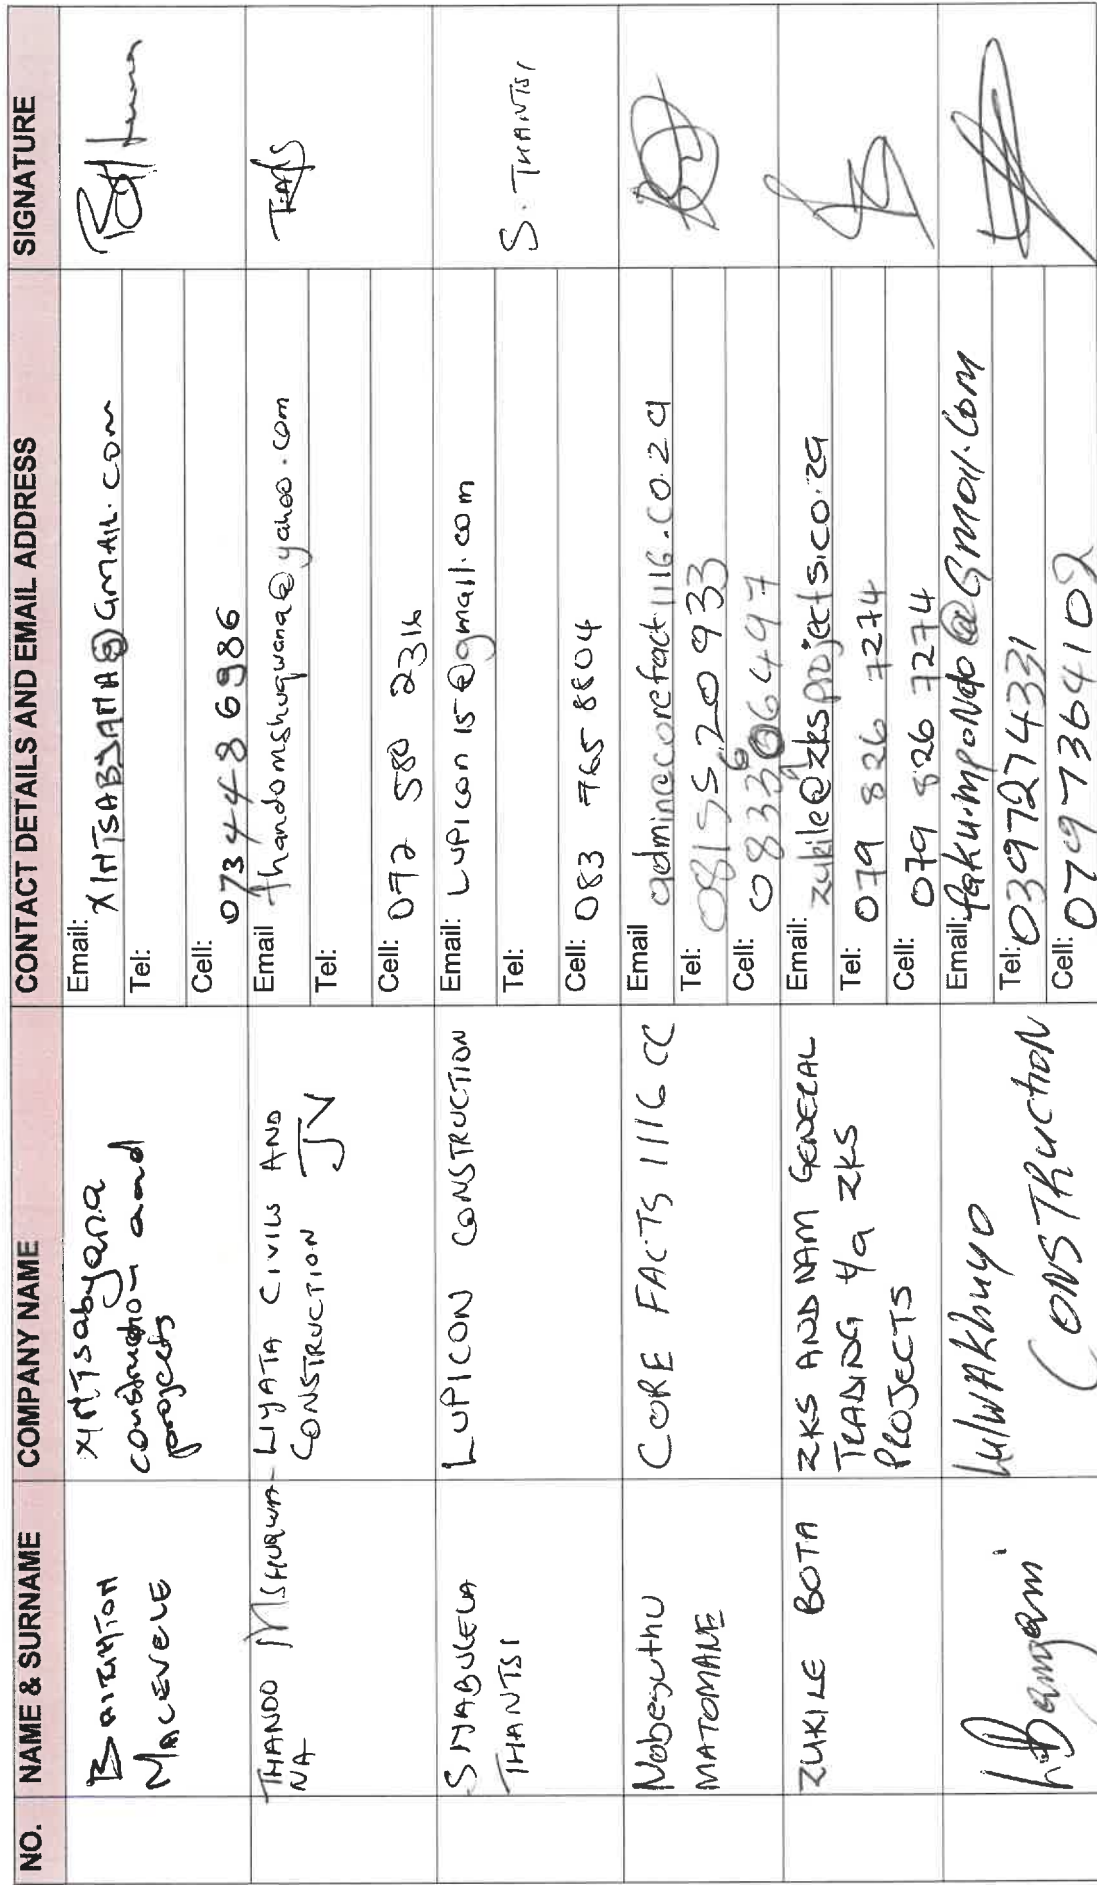 NO. NAME & SURNAME COMPANY NAME CONTACT DETAILS AND EMAIL ADDRESS SIGNATURE
MACEVELE
XIMTSabyana
construction and
projects
Email: XIMTSABJAMA@GMAIL.COM
Tel:
Cell: 073 448 6986
THANDO MSHUQWA-
NA
LIYATA CIVILS AND
CONSTRUCTION JV
Email thandomshuqwana@yahoo.com
Tel:
Cell: 072 580 2316
SIYABULELA
THANTSI
LUPICON CONSTRUCTION
Email: LUPICON15@gmail.com
Tel:
Cell: 083 765 8804
S. THANTSI
Nobeguthu
MATOMANE
CORE FACTS 1116 CC
Email admin@corefact1116.co.za
Tel: 0815520933
Cell: 0833606497
ZUKILE BOTA
ZKS AND NAM GENERAL
TRADING t/a ZKS
PROJECTS
Email: zukile@zksprojects.co.za
Tel: 079 826 7274
Cell: 079 826 7274
L. Bangani
LulWAKhuyo
CONSTRuctioN
Email: faku.mpoNdo@Gmail.Com
Tel: 0397274331
Cell: 0797364102